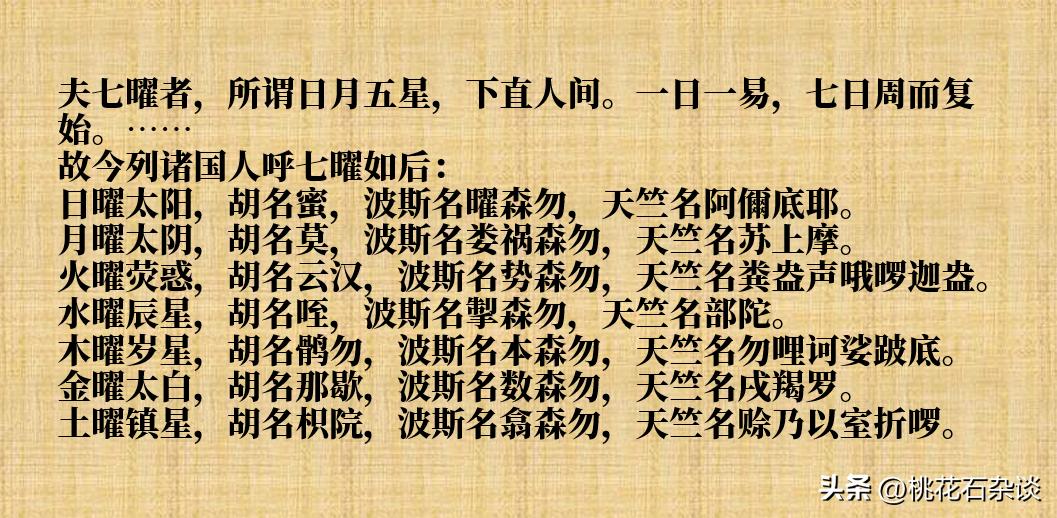 夫七曜者，所谓日月五星，下直人间。一日一易，七日周而复
始。……
故今列诸国人呼七曜如后：
日曜太阳，胡名蜜，波斯名曜森勿，天竺名阿儞底耶。
月曜太阴，胡名莫，波斯名娄祸森勿，天竺名苏上摩。
火曜荧惑，胡名云汉，波斯名势森勿，天竺名粪盎声哦啰迦盎。
水曜辰星，胡名咥，波斯名掣森勿，天竺名部陀。
木曜岁星，胡名鹘勿，波斯名本森勿，天竺名勿哩诃娑跛底。
金曜太白，胡名那歇，波斯名数森勿，天竺名戌羯罗。
土曜镇星，胡名枳院，波斯名翕森勿，天竺名赊乃以室折啰。
头条 @桃花石杂谈